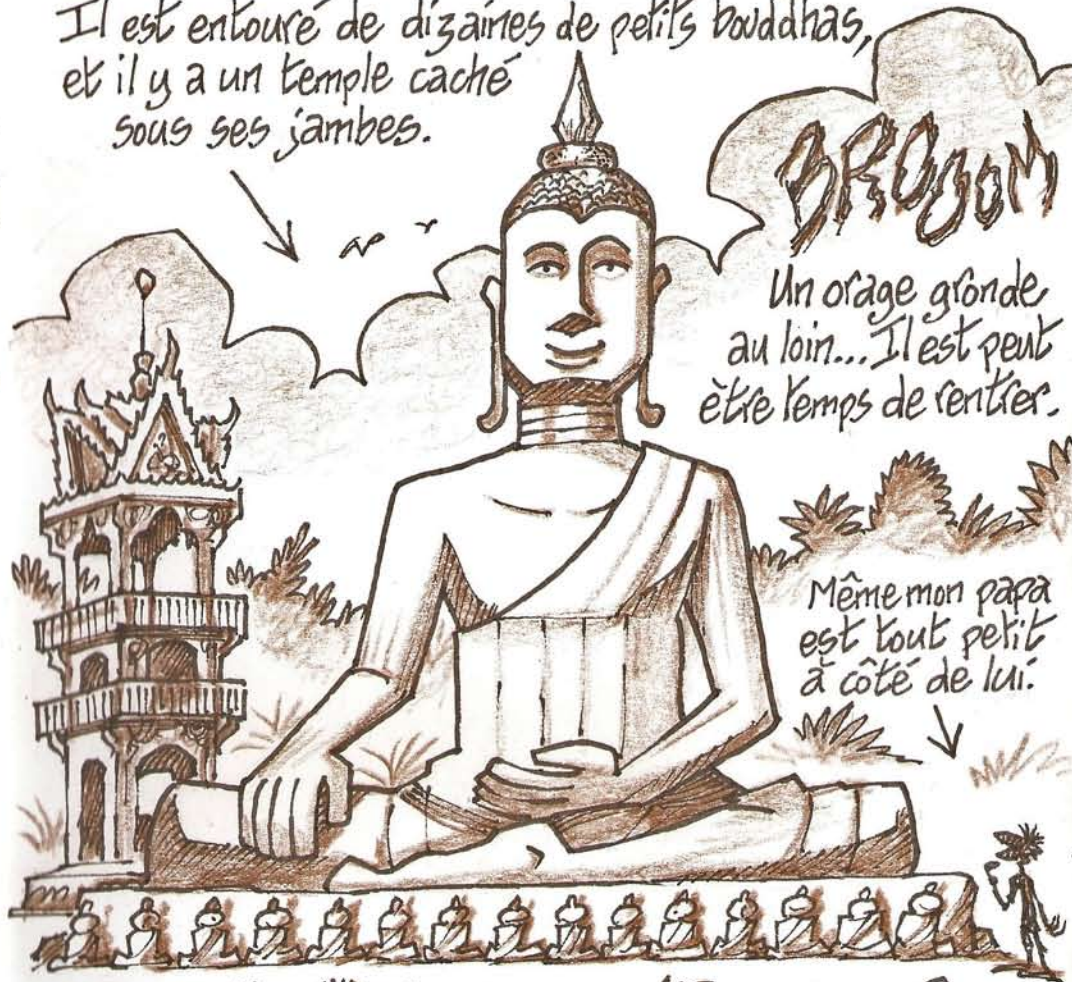 Il est entouré de dizaines de petits bouddhas,
et il y a un temple caché
sous ses jambes.
BROOOM
Un orage gronde
au loin... Il est peut
être temps de rentrer.
Même mon papa
est tout petit
à côté de lui.